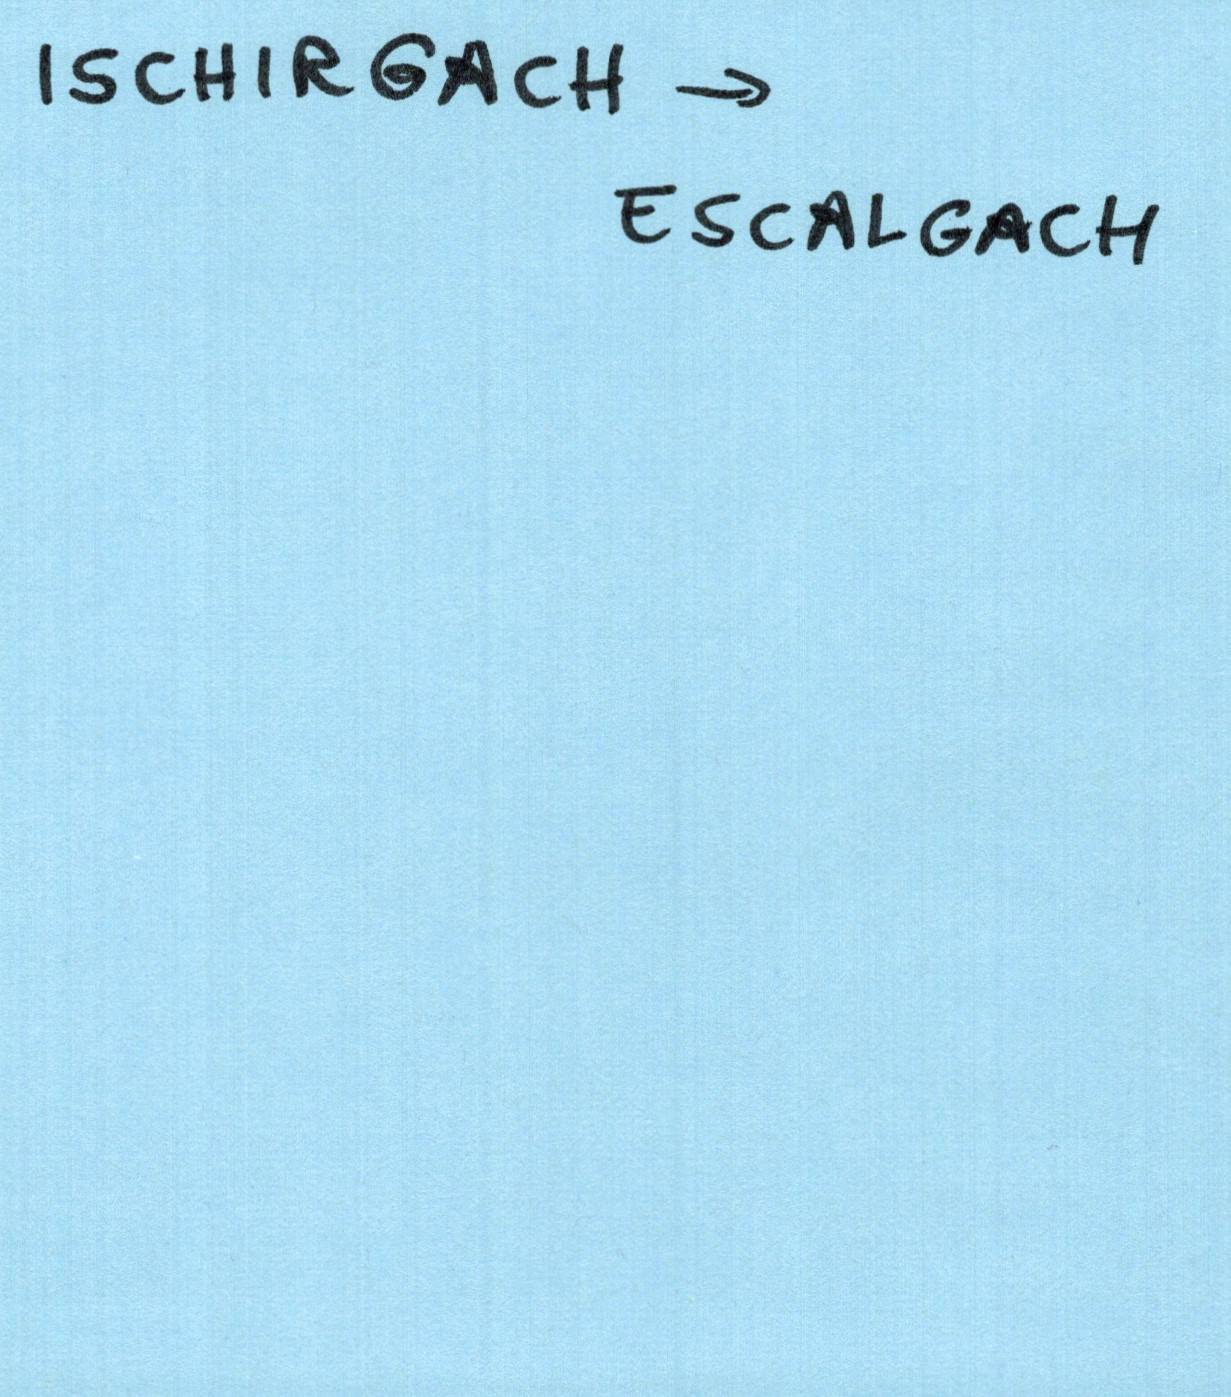 ISCHIRGACH →
ESCALGACH